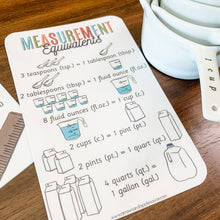 MEASUREMENT
Equivalents
3 teaspoons (tsp.) = 1 tablespoon (tbsp.)
2 tablespoons (tbsp.) = 1 fluid ounce (fl.oz.)
8 fluid ounces (fl.oz.) = 1 cup (c.)
2 cups (c.) = 1 pint (pt.)
2 pints (pt.) = 1 quart (qt.)
4 quarts (qt.) =
1 gallon (gal.)